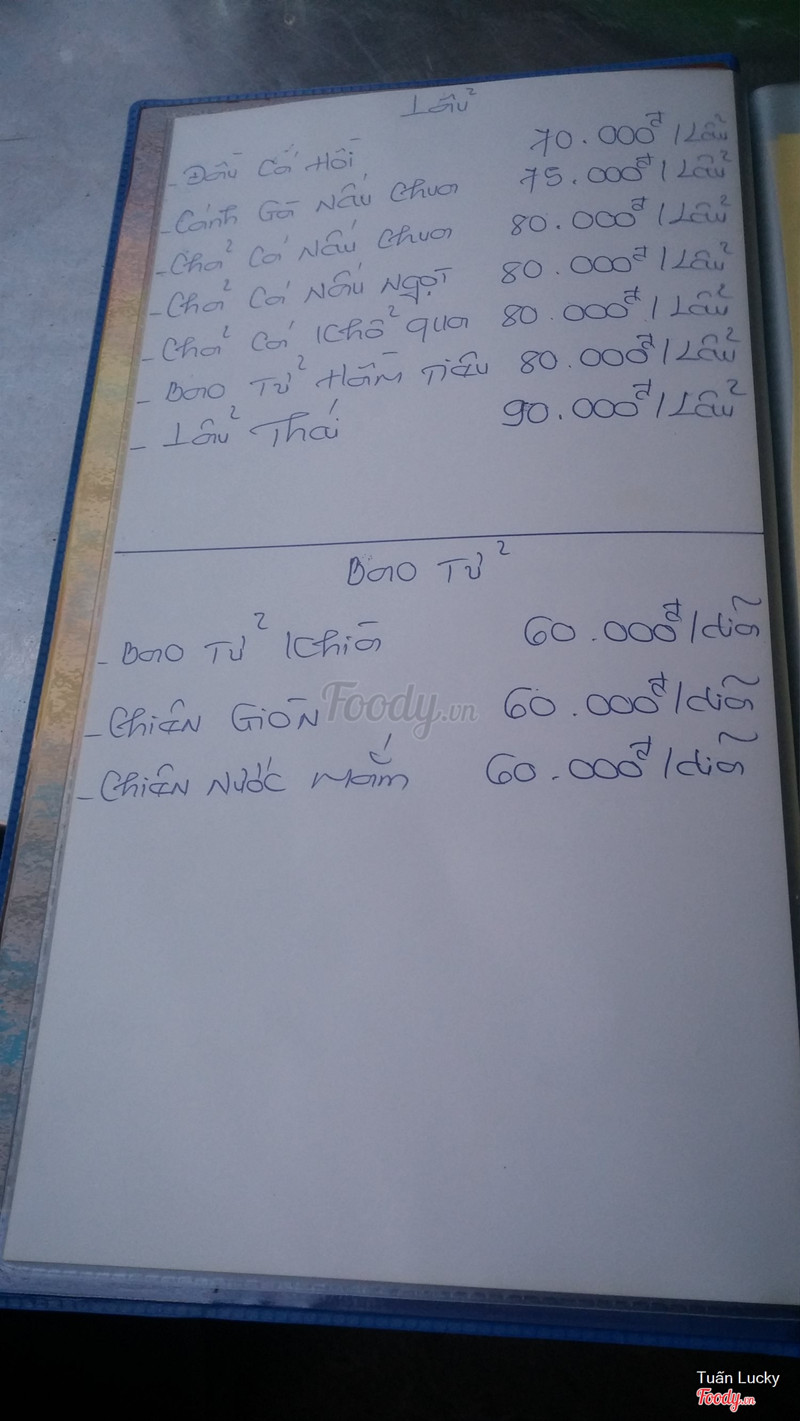 Lẩu
- Đầu Cá Hồi 70.000đ/Lẩu
- Cánh Gà Nấu Chua 75.000đ/Lẩu
- Chả Cá Nấu Chua 80.000đ/Lẩu
- Chả Cá Nấu Ngọt 80.000đ/Lẩu
- Chả Cá Khổ Qua 80.000đ/Lẩu
- Bao Tử Hầm Tiêu 80.000đ/Lẩu
- Lẩu Thái 90.000đ/Lẩu
Bao Tử
- Bao Tử Khìa 60.000đ/dĩa
- Chiên Giòn 60.000đ/dĩa
- Chiên Nước Mắm 60.000đ/dĩa
Foody.vn
Tuấn Lucky
Foody.vn